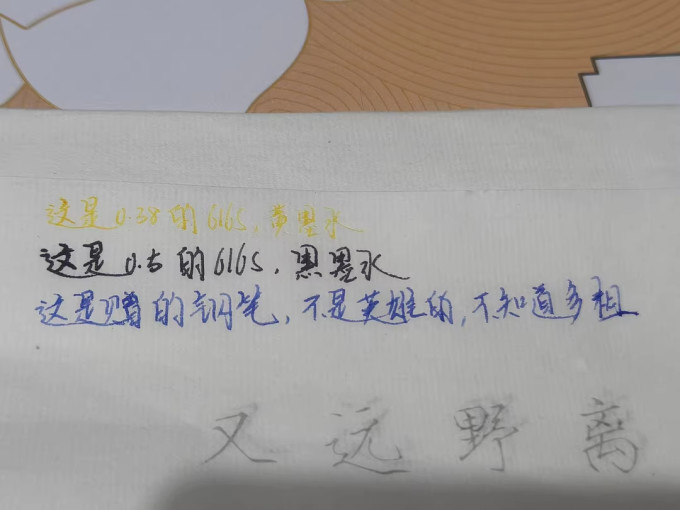 这是0.38的616S,黄墨水
这是0.5的616S,黑墨水
这是赠的钢笔,不是英雄的,不知道多粗
又远野离